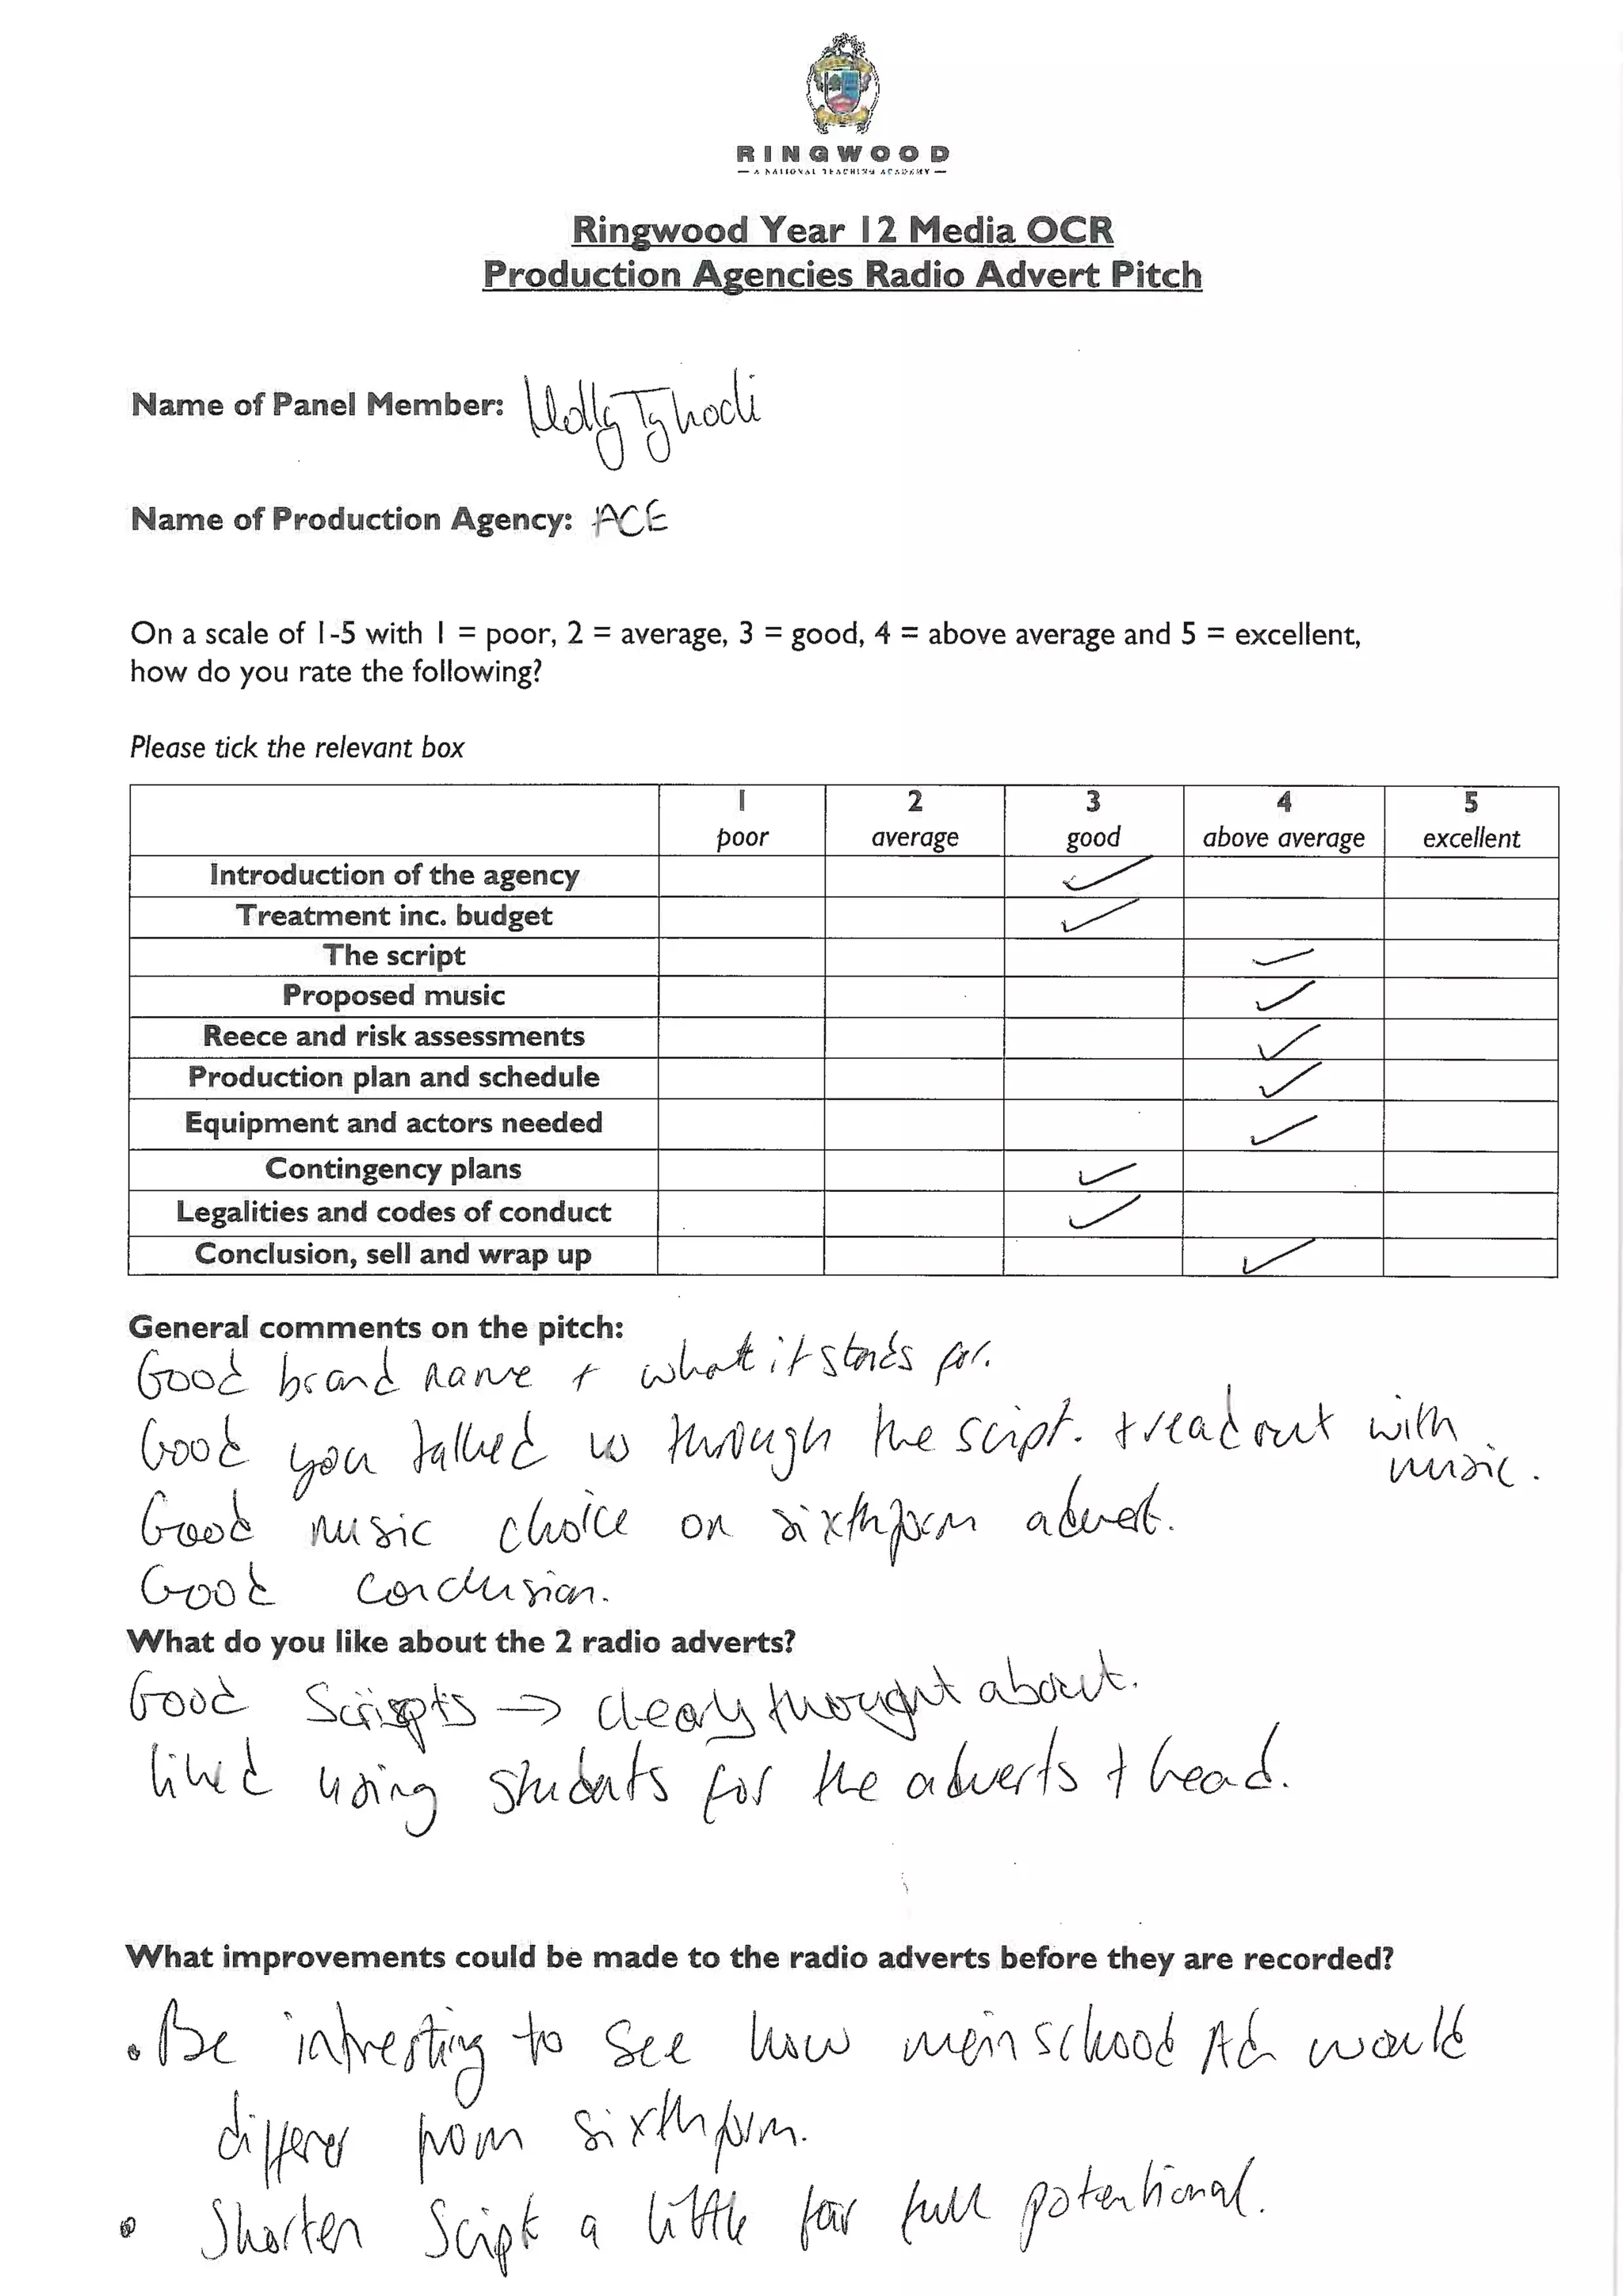 RINGWOOD
— A NATIONAL TEACHING ACADEMY —
Ringwood Year 12 Media OCR
Production Agencies Radio Advert Pitch
Name of Panel Member: Molly
Name of Production Agency: ACE
On a scale of 1-5 with 1 = poor, 2 = average, 3 = good, 4 = above average and 5 = excellent,
how do you rate the following?
Please tick the relevant box
1 2 3 4 5
poor average good above average excellent
Introduction of the agency ✓
Treatment inc. budget ✓
The script ✓
Proposed music ✓
Reece and risk assessments ✓
Production plan and schedule ✓
Equipment and actors needed ✓
Contingency plans ✓
Legalities and codes of conduct ✓
Conclusion, sell and wrap up ✓
General comments on the pitch:
Good brand name + what it stands for.
Good you talked us through the script. + read out with
music.
Good music choice on sixthform advert.
Good conclusion.
What do you like about the 2 radio adverts?
Good Scripts → clearly thought about.
liked using students for the adverts + head.
What improvements could be made to the radio adverts before they are recorded?
• Be intresting to see how main school Ad would
differ from sixthform.
• Shorten Script a little for full potentional.